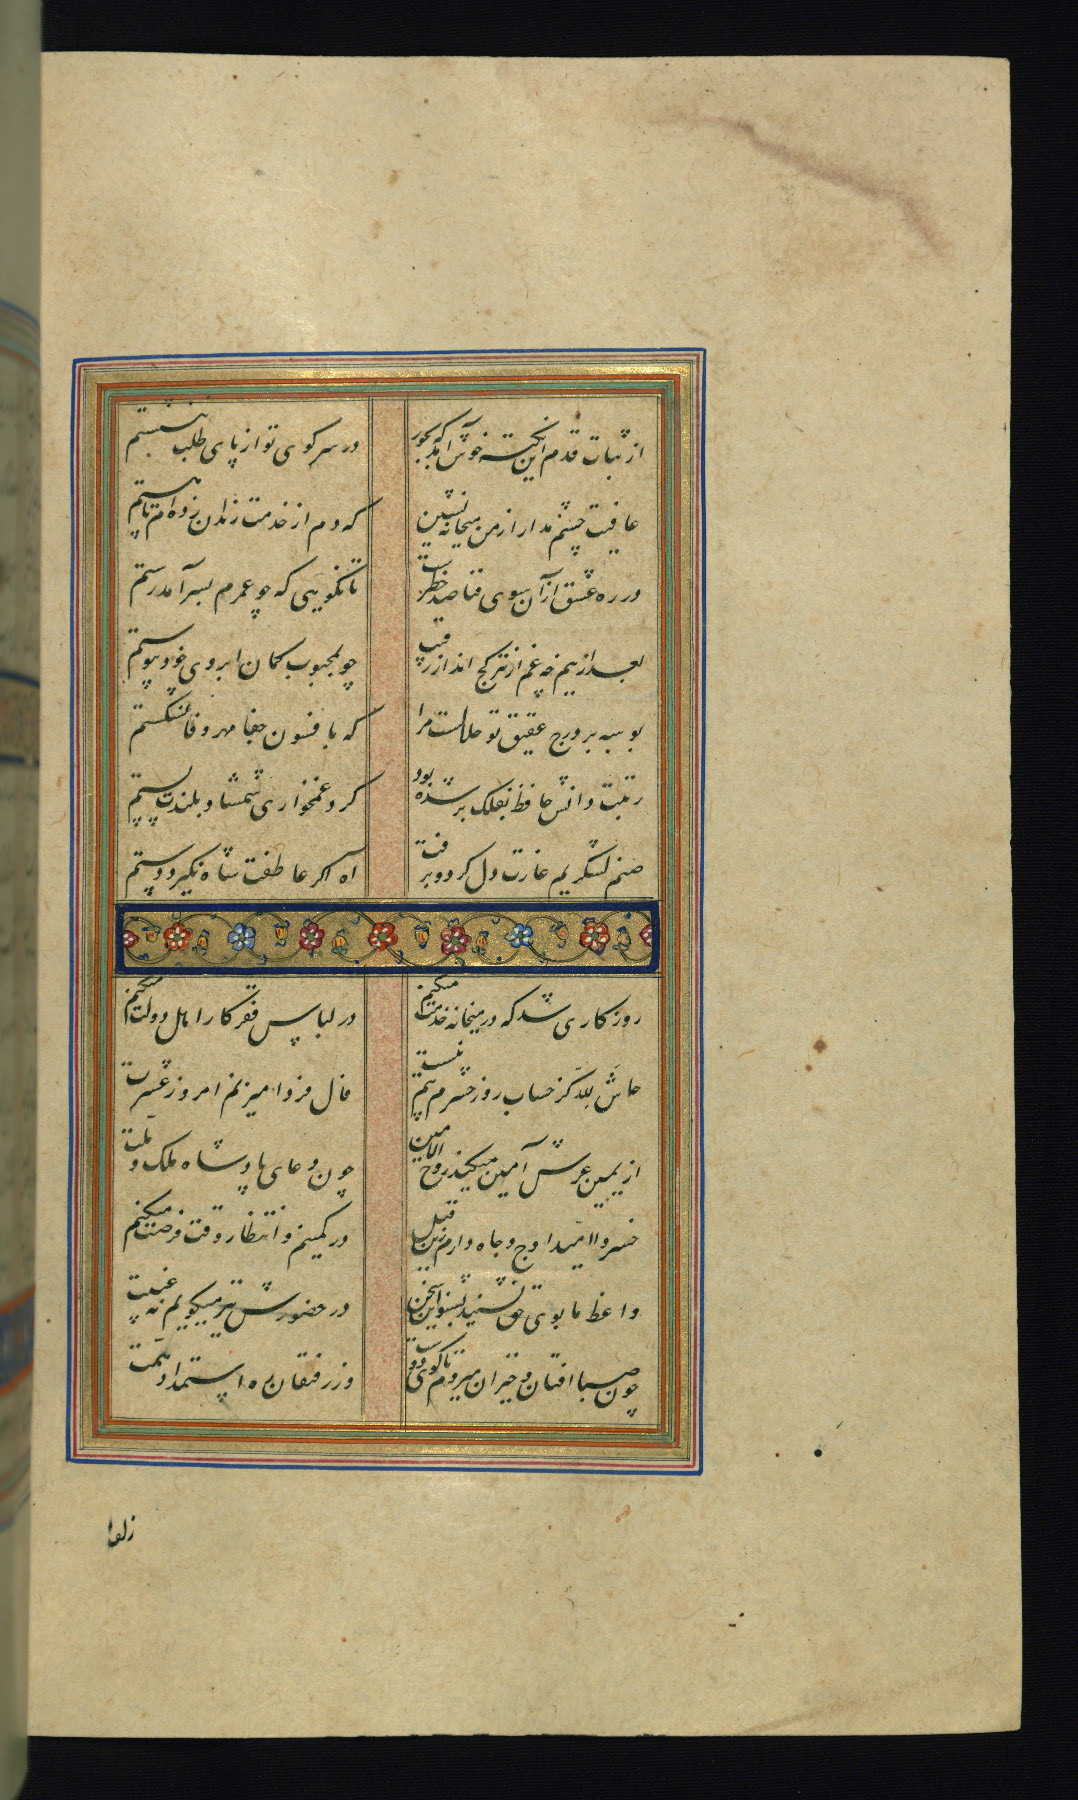 از ثبات قدم این نکته خوش آمد که بجور
در سر کوی تو از پای طلب ننشستم
عافیت چشم مدار از من میخانه نشین
که دم از خدمت رندان زده‌ام تا هستم
در ره عشق از آن سوی فنا صد خطرست
تا نگویی که چو عمرم بسر آمد رستم
بعد از نیم چه غم از تیر کج انداز رقیب
چو بمحبوب کمان ابروی خود پیوستم
بوسه بر درج عقیق تو حلالست مرا
که بافسون جفا مهر وفا نشکستم
رتبت دانش حافظ بفلک بر شده بود
کرد غمخواری شمشاد بلندت پستم
صنم لشکریم غارت دل کرد و برفت
آه اگر عاطفت شاه نگیرد دستم
روزگاری شد که در میخانه خدمت میکنم
در لباس فقر کار اهل دولت میکنم
حاش لله کز حساب روز حشرم بیم نیست
فال فردا میزنم امروز عشرت
از یمین عرش آمین میکند روح الامین
چون دعای پادشاه ملک و ملت
خسروا امید اوج و جاه دارم زین قبل
در کمینم و انتظار وقت فرصت میکنم
واعظ ما بوی حق نشنید بشنو این سخن
در حضورش نیز میگویم نه غیبت
چون صبا افتان و خیزان میروم تا کوی دوست
وز رفیقان ره استمداد همت
زلف